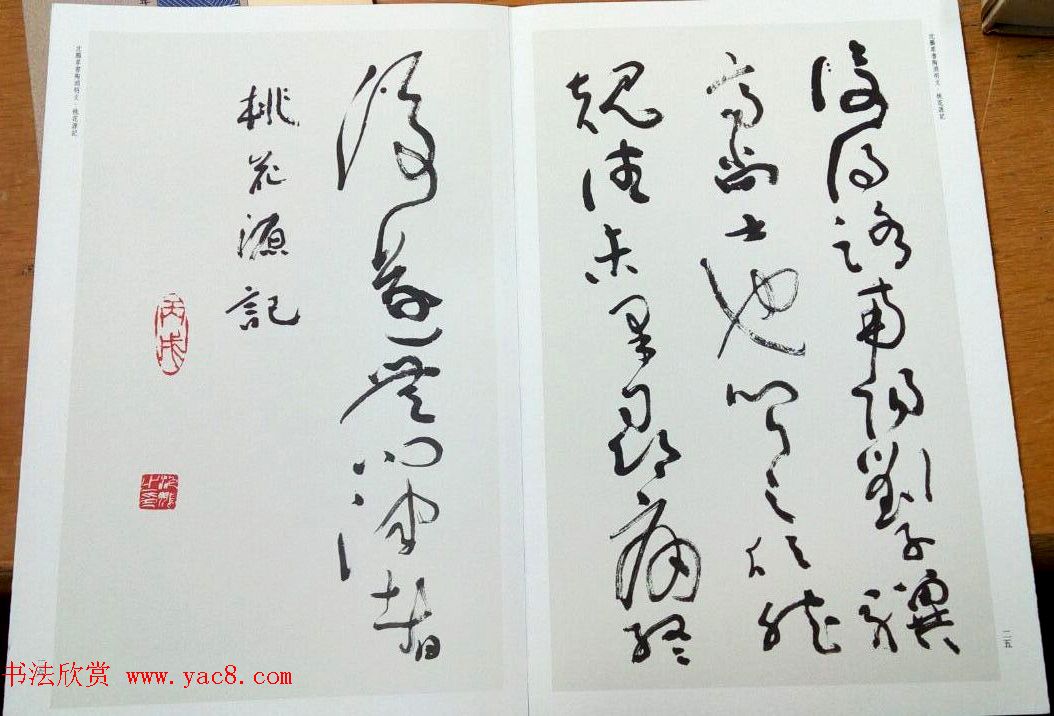 沈鵬草書陶淵明文·桃花源記
復得路南陽劉子驥
高尚士也聞之欣然
規往未果尋病終
後遂無問津者
桃花源記
丙戌
沈鵬之印
沈鵬草書陶淵明文·桃花源記
书法欣赏 www.yac8.com